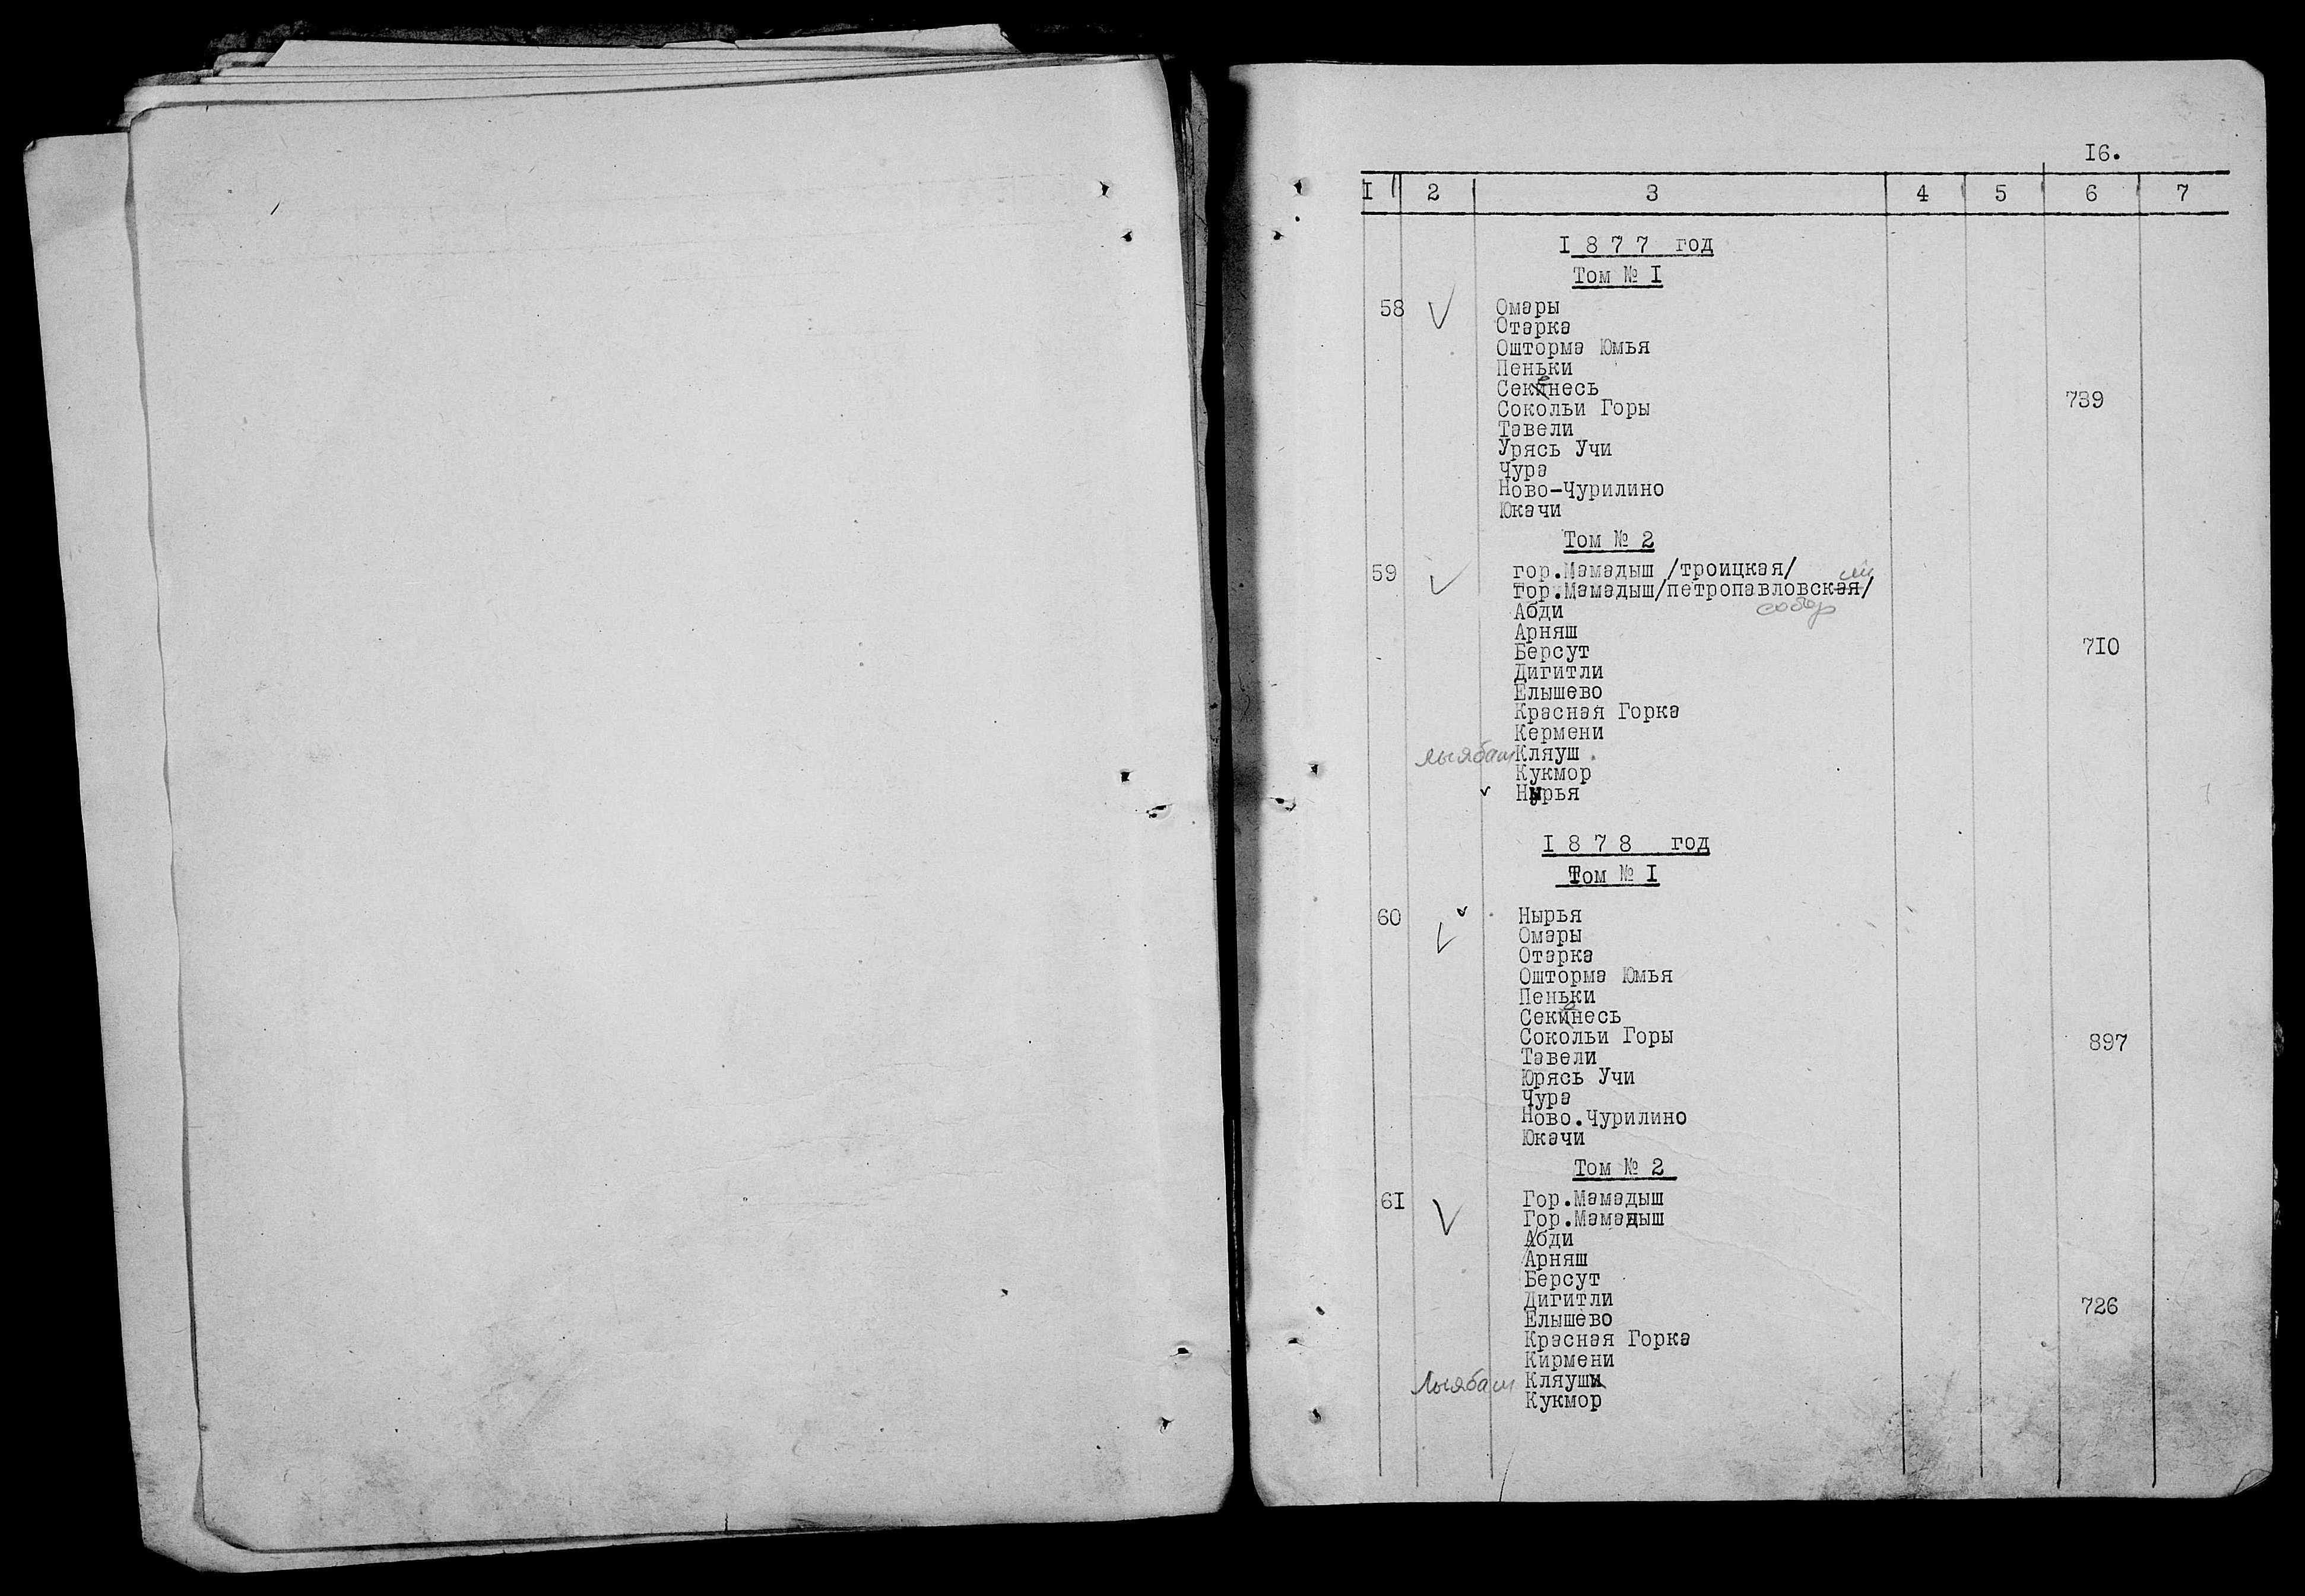 I6.
I 2 3 4 5 6 7
I 8 7 7 год
Том № I
58 Омары
Отарка
Ошторма Юмья
Пеньки
Секинесь
Сокольи Горы 739
Тавели
Урясь Учи
Чура
Ново-Чурилино
Юкачи
Том № 2
59 гор.Мамадыш /троицкая/
ий
гор.Мамадыш/петропавловская/
собор
Абди
Арняш
Берсут 7I0
Дигитли
Елышево
Красная Горка
Кермени
Лыябаш Кляуш
Кукмор
Нырья
I 8 7 8 год
Том № I
60 Нырья
Омары
Отарка
Ошторма Юмья
Пеньки
Секинесь
Сокольи Горы 897
Тавели
Юрясь Учи
Чура
Ново.Чурилино
Юкачи
Том № 2
6I Гор.Мамадыш
Гор.Мамадыш
Абди
Арняш
Берсут
Дигитли 726
Елышево
Красная Горка
Кирмени
Лыябаш Кляуши
Кукмор